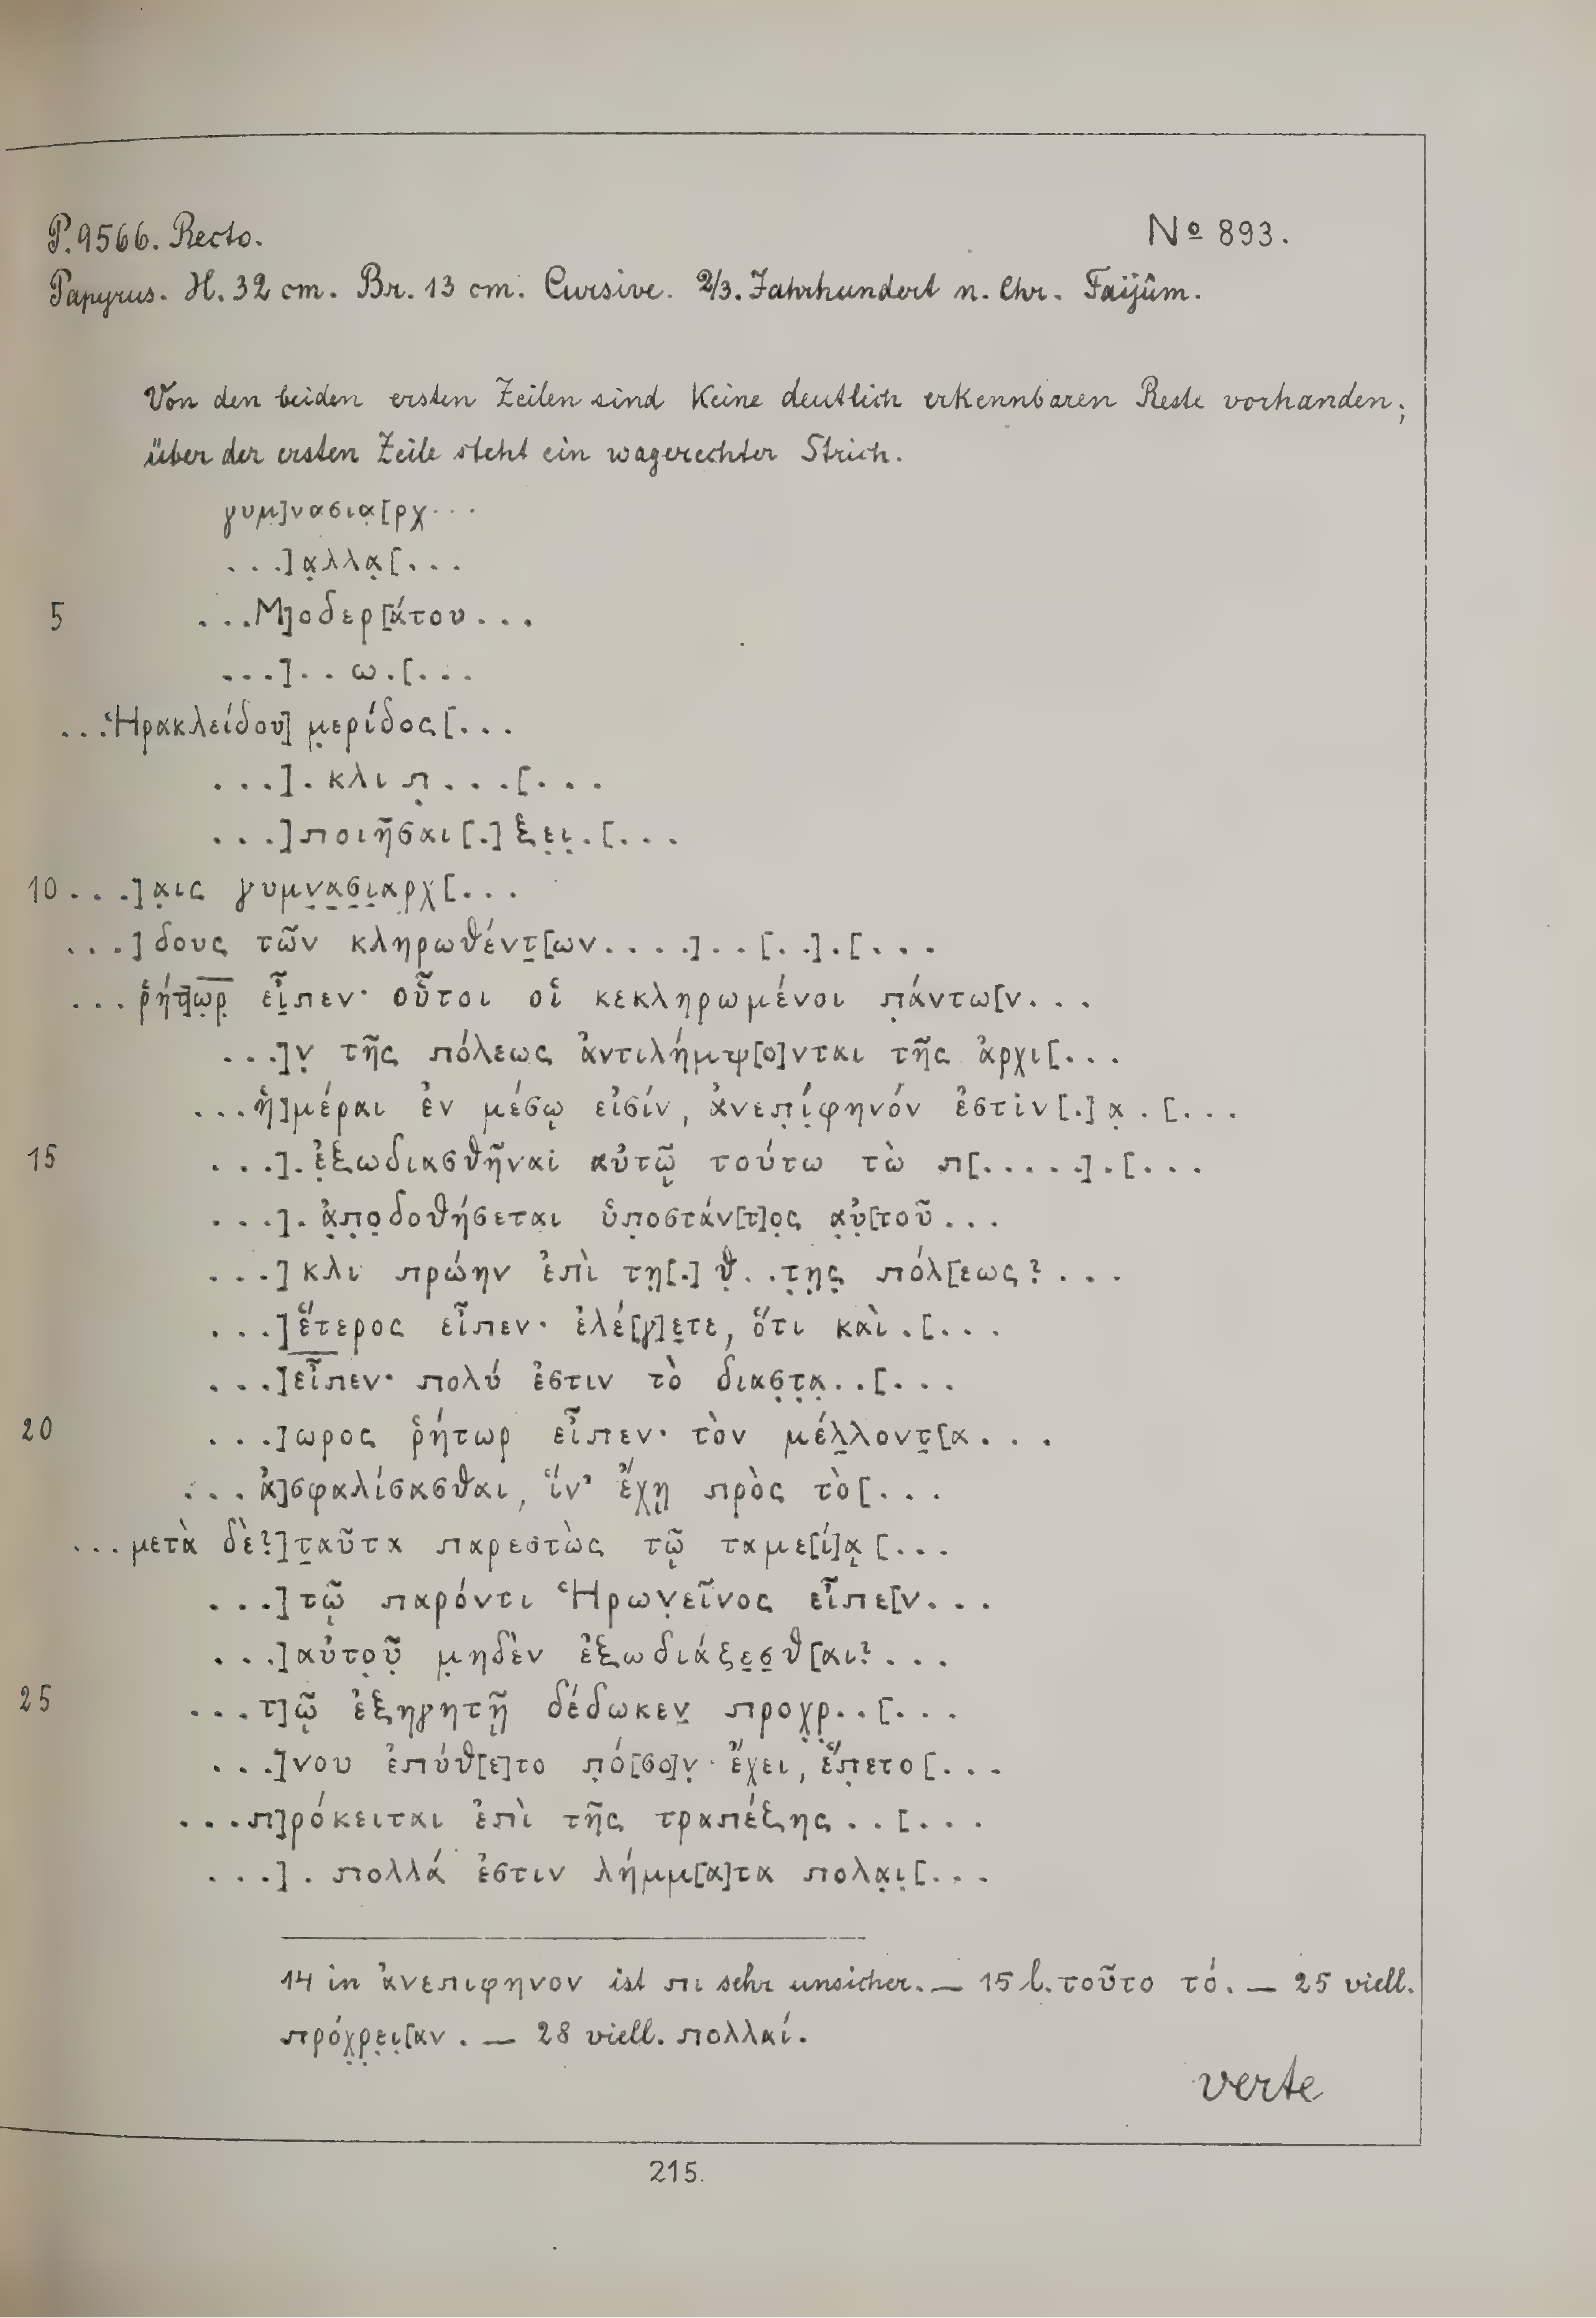 P. 9566. Recto. No 893.
Papyrus. H. 32 cm. Br. 13 cm. Cursive. 2/3. Jahrhundert n. Chr. Faijûm.
Von den beiden ersten Zeilen sind keine deutlich erkennbaren Reste vorhanden;
über der ersten Zeile steht ein wagerechter Strich.
γυμ]νασια̣[ρχ...
...]α̣λλα̣[...
5 ...Μ]οδερ[άτου...
...]..ω.[...
...Ἡρακλείδου] μ̣ερίδος[...
...].κλιπ̣...[...
...]ποιῆσαι[.]ξε̣ι̣.[...
10 ...]α̣ις γυμν̣α̣σ̣ι̣αρχ[...
...]δους τῶν κληρωθέντ̣[ων....]..[..].[...
...ῥήτ]ω̣ρ̣ εἶ̣πεν· οὗτοι οἱ κεκληρωμένοι π̣άντω[ν...
...]ν̣ τῆς πόλεως ἀντιλήμψ[ο]νται τῆς ἀρχι[...
...ἡ]μέραι ἐν μέσῳ εἰσίν, ἀνεπ̣ί̣φηνόν ἐστὶν[.]α̣.[...
15 ...].ἐ̣ξωδιασθῆναὶ αὐτῷ τούτω τὼ π[.....].[...
...].ἀ̣π̣ο̣δοθήσεται ὑπ̣οστάν[τ]ο̣ς α̣ὐ̣[τοῦ...
...]κλι πρώην ἐπὶ τη̣[.]θ̣..τ̣η̣ς̣ πόλ[εως?...
...]ἕτερος εἶπεν· ἐλέ[γ]ε̣τε, ὅτι καὶ.[...
...]εἶπεν· πολύ ἐστιν τὸ διασ̣τ̣α̣..[...
20 ...]ωρος ῥήτωρ εἶπεν· τὸν μέλ̣λοντ̣[α...
...ἀ]σφαλίσασθαι, ἵν’ ἔχῃ πρὸς τὸ[...
...μετὰ δὲ?]τ̣αῦτα παρεστὼς τῷ ταμε[ί]ᾳ [...
...]τῷ παρόντι Ἡρων̣εῖνος εἶπε[ν...
...]αὐτο̣ῦ̣ μ̣ηδὲν ἐξωδιάζε̣σ̣θ[αι?...
25 ...τ]ῷ ἐξηγητῇ δέδωκεν̣ προχ̣ρ̣..[...
...]νου ἐπύθ[ε]το π̣ό[σο]ν̣· ἔχει, ἕπ̣ετο[...
...π]ρόκειται ἐπὶ τῆς τραπέζης..[...
...]. πολλά ἐστιν λήμμ[α]τα πολα̣ι̣[...
14 in ἀνεπιφηνον ist πι sehr unsicher. — 15 l. τοῦτο τό. — 25 viell.
πρόχ̣ρ̣ε̣ι̣[αν. — 28 viell. πολλαί.
verte
215.